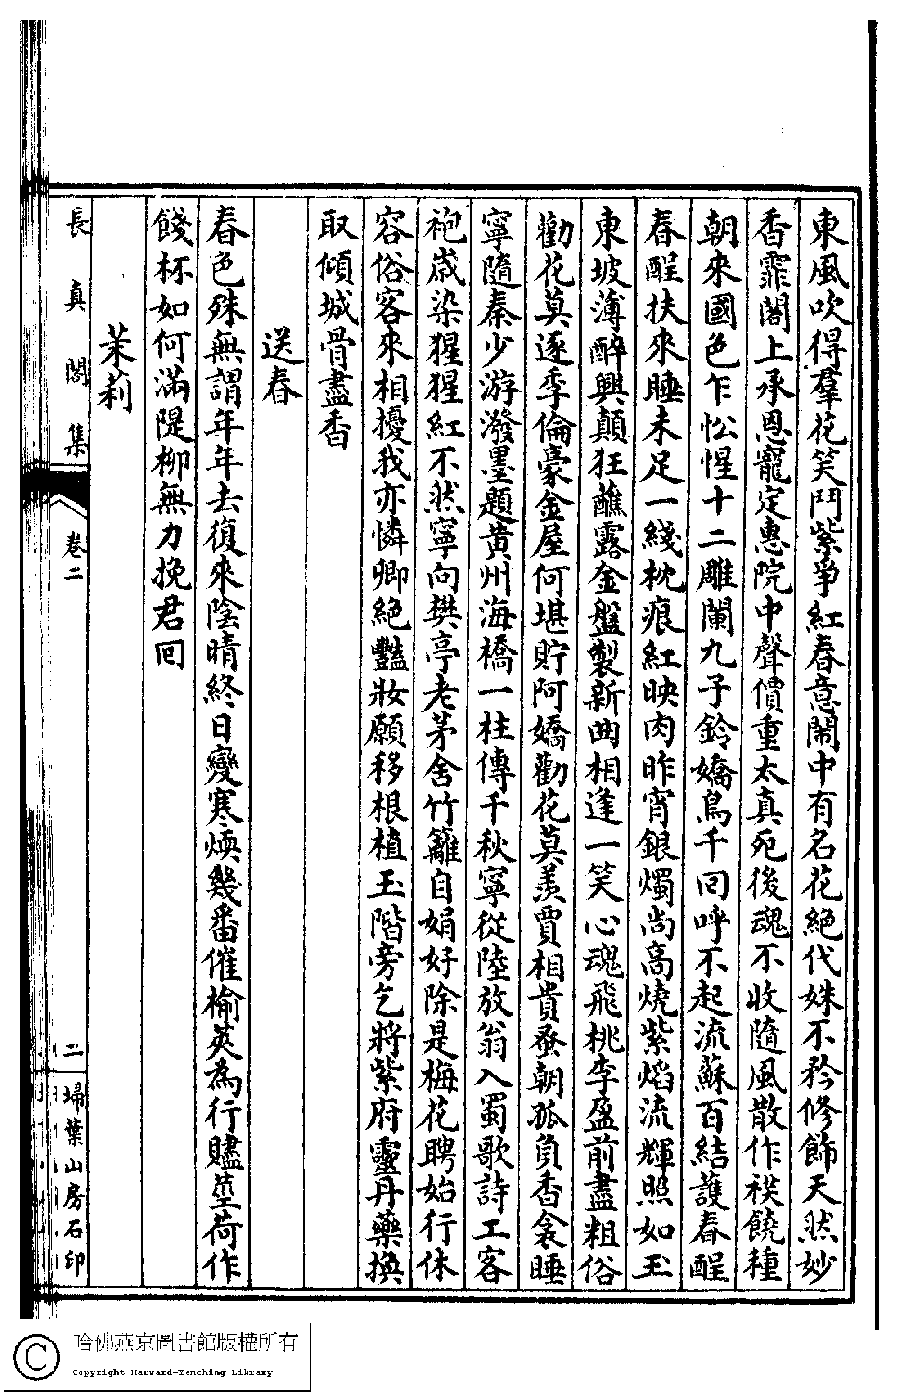 東風吹得羣花笑鬥紫爭紅春意鬧中有名花絕代姝不矜修飾天然妙
香霏閣上承恩寵定惠院中聲價重太真死後魂不收隨風散作襖饒種
朝來國色乍忪惺十二雕闌九子鈴嬌鳥千回呼不起流蘇百結護春酲
春酲扶來睡未足一綫枕痕紅映肉昨宵銀燭尚高燒紫焰流輝照如玉
東坡薄醉興顛狂蘸露金盤製新曲相逢一笑心魂飛桃李盈前盡粗俗
勸花莫逐季倫豪金屋何堪貯阿嬌勸花莫羨賈相貴蚤朝孤負香衾睡
寧隨秦少游潑墨題黃州海橋一柱傳千秋寧從陸放翁入蜀歌詩工客
袍歲染猩猩紅不然寧向樊亭老茅舍竹籬自娟好除是梅花聘始行休
容俗客來相擾我亦憐卿絕豔妝願移根植玉階旁乞將紫府靈丹藥換
取傾城骨盡香
送春
春色殊無謂年年去復來陰晴終日變寒燠幾番催榆莢為行贐荷作
餞杯如何滿隄柳無力挽君回
茉莉
長真閣集
卷二
二
掃葉山房石印
哈佛燕京圖書館版權所有
Copyright Harvard-Yenching Library